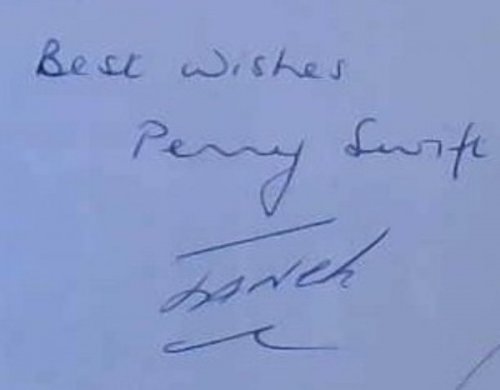 Best wishes
Penny Swift
JANek